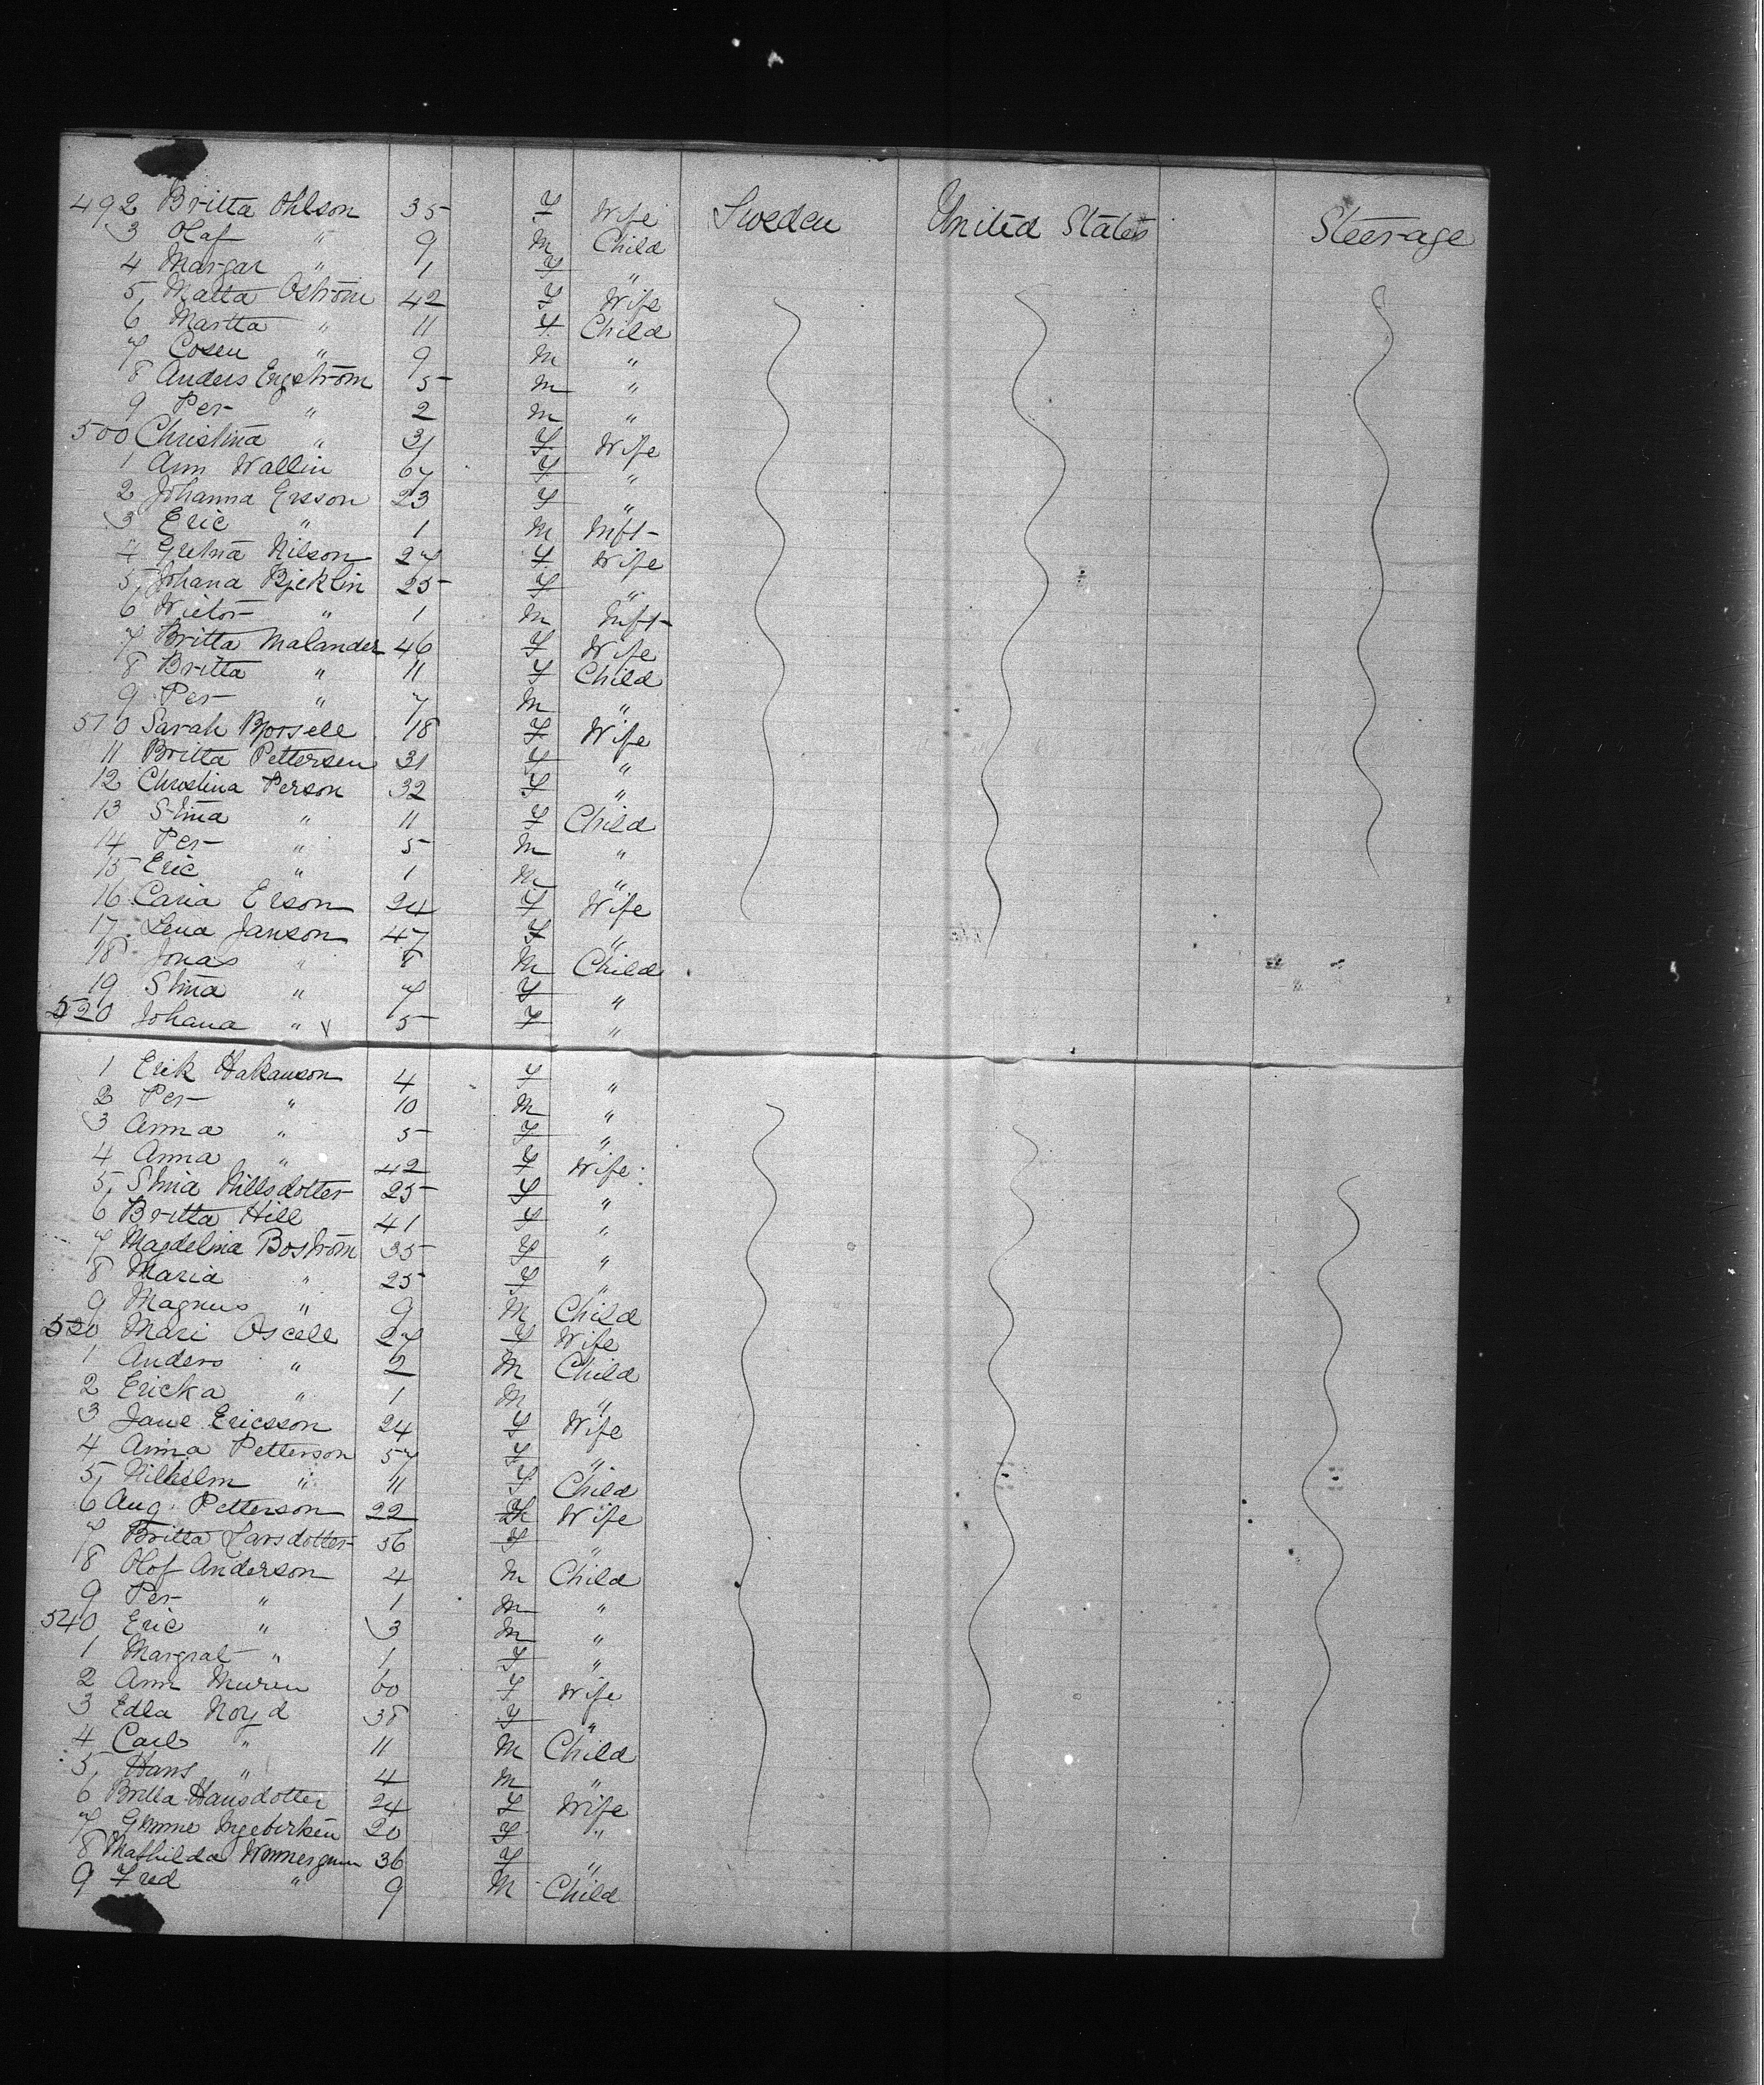 492 Britta Ohlson 35 F Wife Sweden United States Steerage
3 Olaf " 9 M Child
4 Margar " 1 F "
5 Matta Oström 42 F Wife
6 Martta " 11 F Child
7 Cosen " 9 M "
8 Anders Engström 5 M "
9 Per " 2 M "
500 Christina " 31 F Wife
1 Ann Wallin 67 F "
2 Johanna Ersson 23 F "
3 Eric " 1 M Inft
4 Gretna Nilson 27 F Wife
5 Johana Bjeklin 25 F "
6 Wictor " 1 M Inft
7 Britta Malander 46 F Wife
8 Britta " 11 F Child
9 Per " 7 M "
510 Sarah Bjorsell 18 F Wife
11 Britta Pettersen 31 F "
12 Christina Person 32 F "
13 Stina " 11 F Child
14 Per " 5 M "
15 Eric " 1 M "
16 Caria Erson 24 F Wife
17 Lena Janson 47 F "
18 Jonas " 8 M Child
19 Stina " 7 F "
520 Johana " 5 F "
1 Erik Hakanson 4 F "
2 Per " 10 M "
3 Anna " 5 F "
4 Anna " 42 F Wife
5 Stina Nillsdotter 25 F "
6 Britta Hill 41 F "
7 Magdelina Boström 35 F "
8 Maria " 25 F "
9 Magnus " 9 M Child
530 Mari Oscell 27 F Wife
1 Anders " 2 M Child
2 Ericka " 1 M "
3 Jane Ericsson 24 F Wife
4 Anna Petterson 57 F "
5 Wilhelm " 11 F Child
6 Aug. Petterson 22 Wife
7 Britta Larsdotter 56 F "
8 Olof Anderson 4 M Child
9 Per " 1 M "
540 Eric " 3 M "
1 Margrat " 1 F "
2 Ann Muren 60 F Wife
3 Edla Noyd 38 F "
4 Carl " 11 M Child
5 Hans " 4 M "
6 Britta Hansdotter 24 F Wife
7 20 F "
8 Mathilda 36 F "
9 Fred " 9 M Child